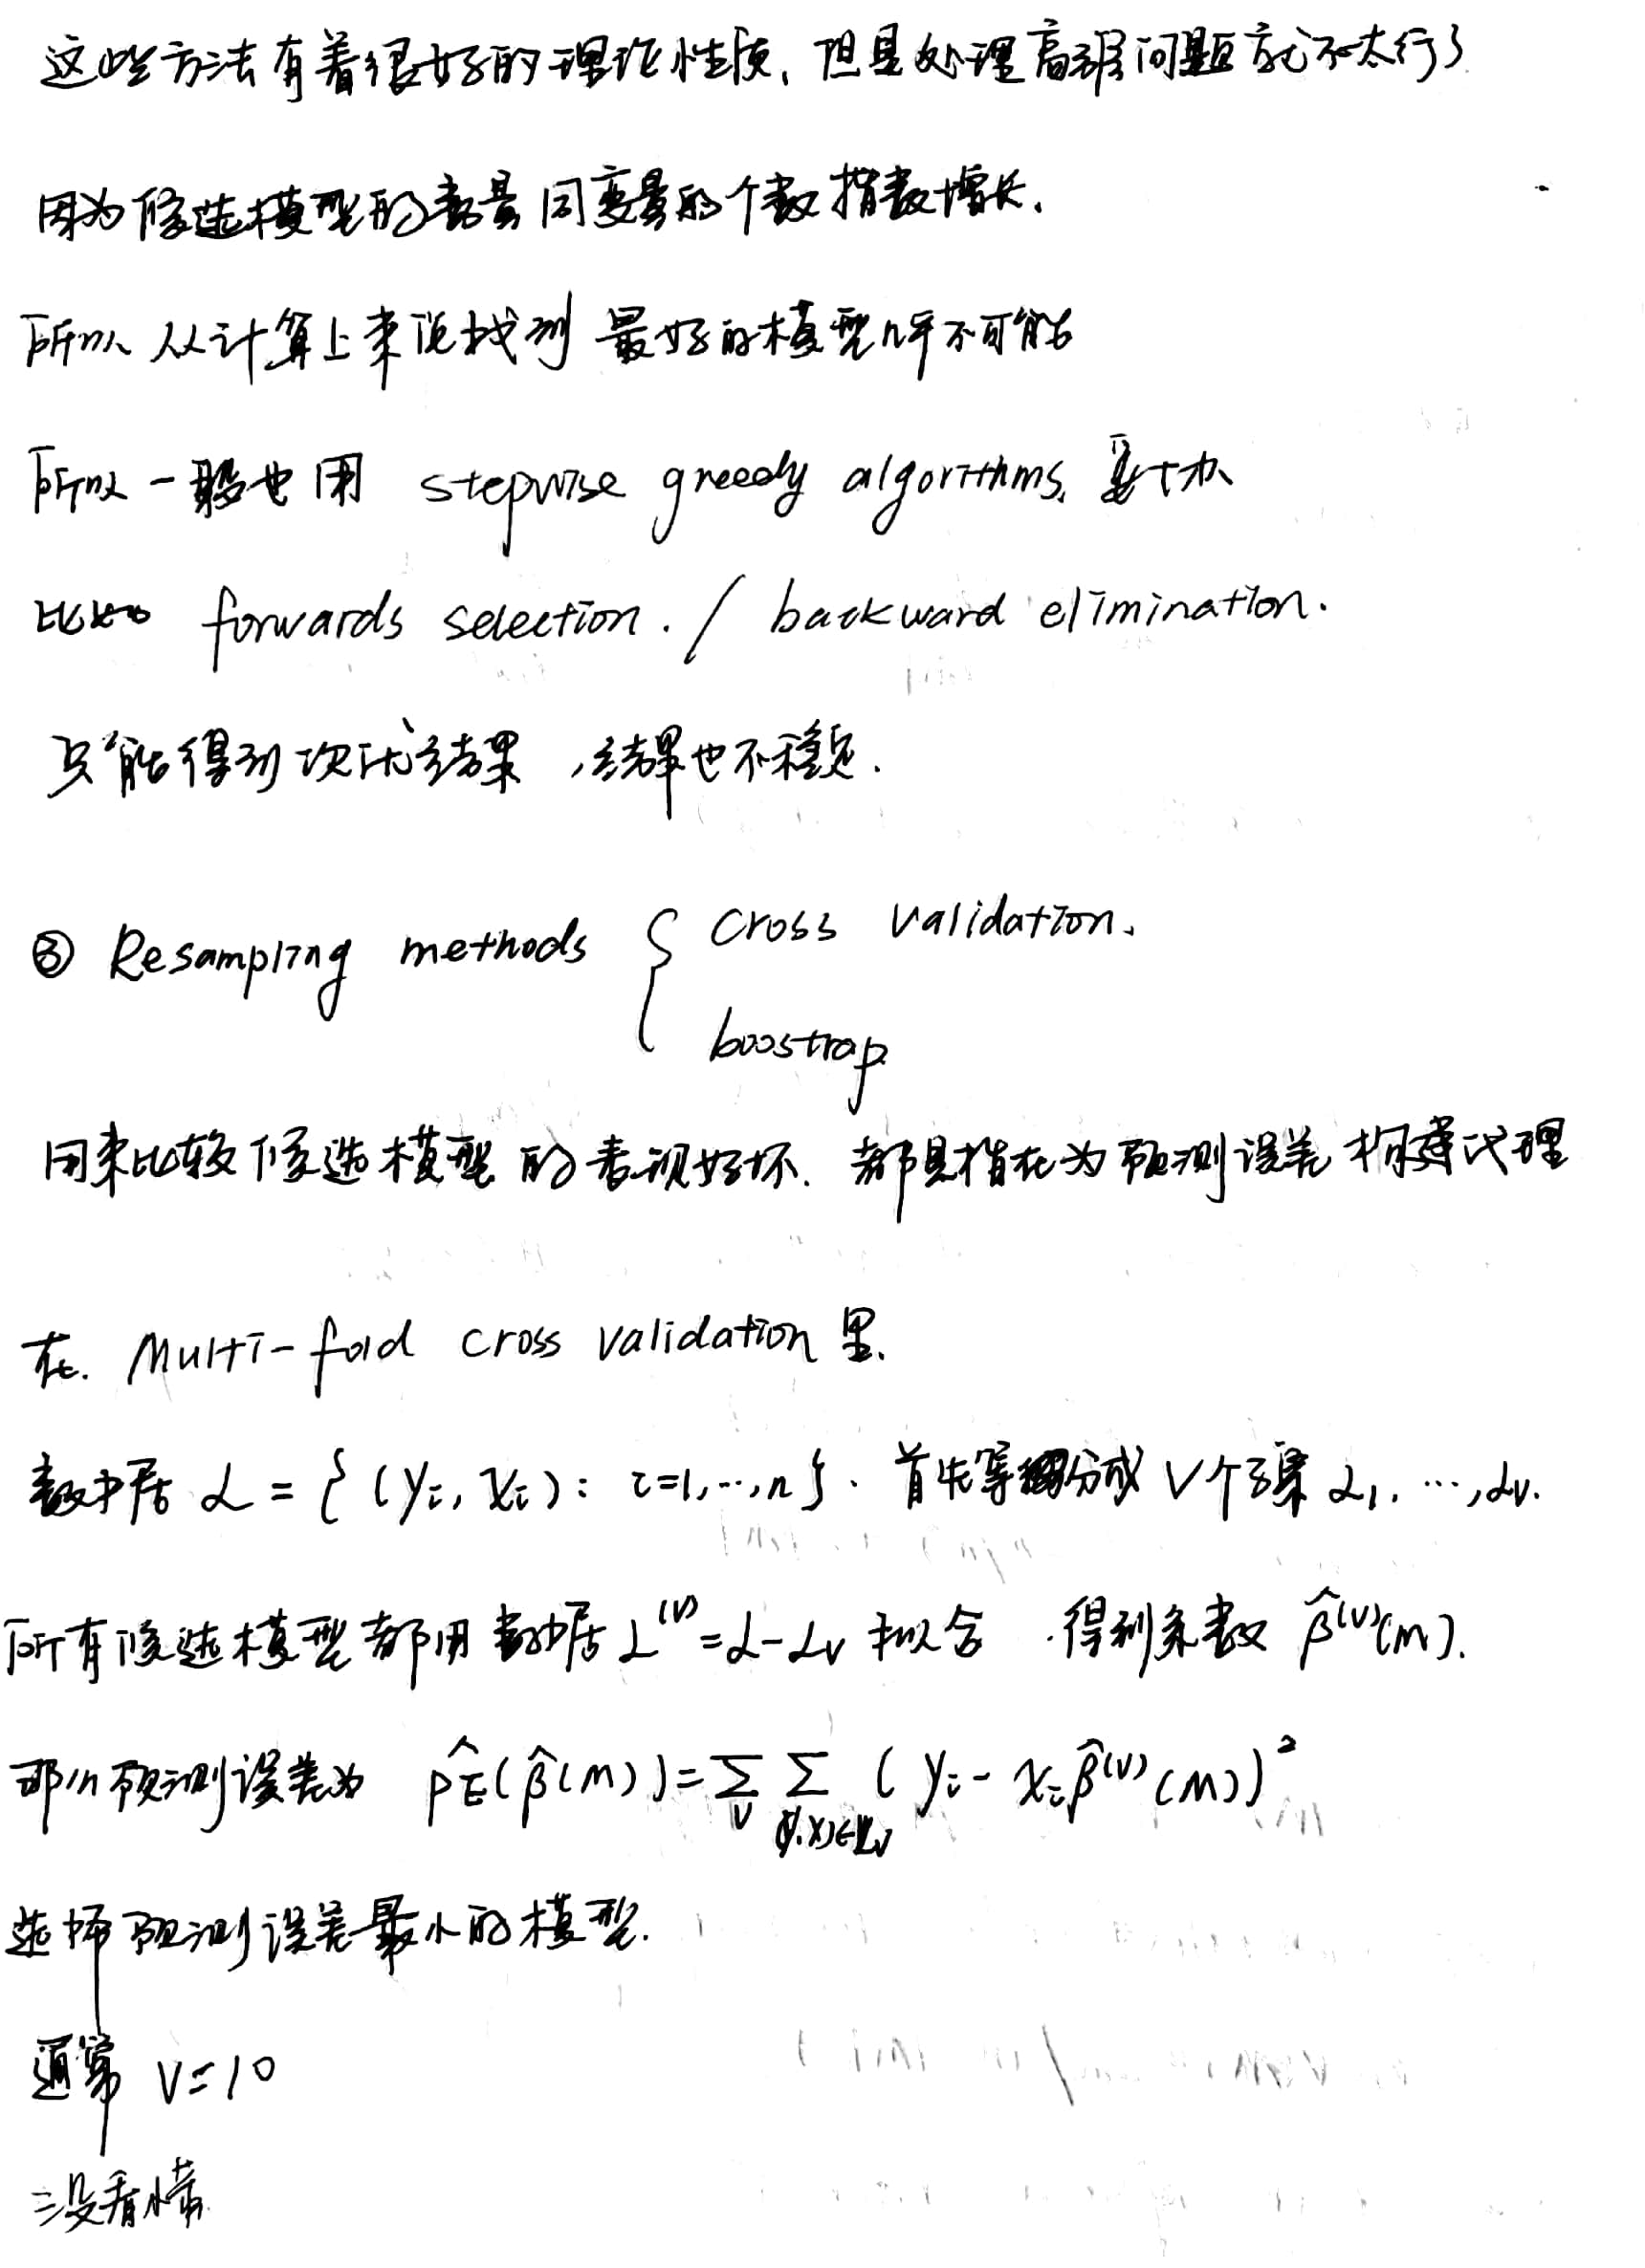 这些方法有着很好的理论性质, 但是处理高维问题就不太行了
因为候选模型的数量同变量的个数指数增长.
所以从计算上来说找到 最好的模型几乎不可能
所以一般也用 stepwise greedy algorithms,
比如 forwards selection. / backward elimination.
只能得到次优结果, 结果也不稳定.
③ Resampling methods { cross validation.
boostrap
用来比较候选模型的表现好坏. 都是指在为预测误差构建代理
在. Multi-fold cross validation 里.
数据 L = { (yi, xi): i=1,...,n }. 首先等分成 V个子集 L1, ..., Lv.
所有候选模型都用数据 L^(v) = L - Lv 拟合. 得到系数 β̂^(v)(M).
那么预测误差为 P̂E(β̂(M)) = Σ_v Σ_(y,x)∈Lv (yi - xi β̂^(v)(M))²
选择预测误差最小的模型.
通常 V=10
没看懂